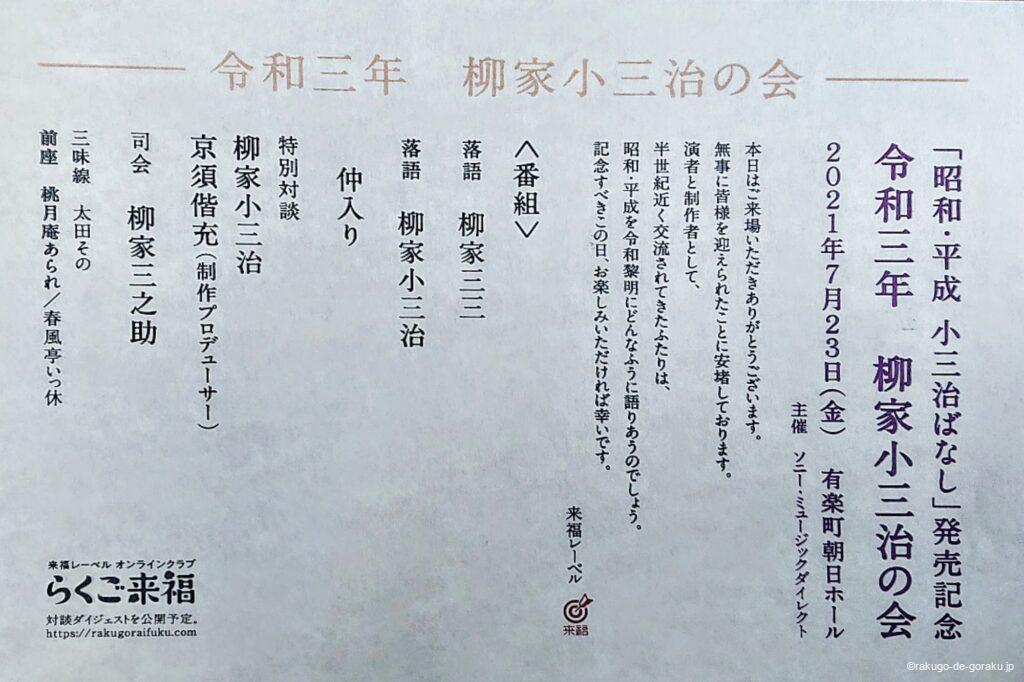 令和三年　柳家小三治の会
「昭和・平成 小三治ばなし」発売記念
令和三年　柳家小三治の会
2021年7月23日（金）　有楽町朝日ホール
主催　ソニー・ミュージックダイレクト
本日はご来場いただきありがとうございます。
無事に皆様を迎えられたことに安堵しております。
演者と制作者として、
半世紀近く交流されてきたふたりは、
昭和・平成を令和黎明にどんなふうに語りあうのでしょう。
記念すべきこの日、お楽しみいただければ幸いです。
来福レーベル
来福
〈番組〉
落語　柳家三三
落語　柳家小三治
仲入り
特別対談
柳家小三治
京須偕充（制作プロデューサー）
司会　柳家三之助
三味線　太田その
前座　桃月庵あられ／春風亭いっ休
来福レーベル オンラインクラブ
らくご来福
対談ダイジェストを公開予定。
https://rakugoraifuku.com
©rakugo-de-goraku.jp